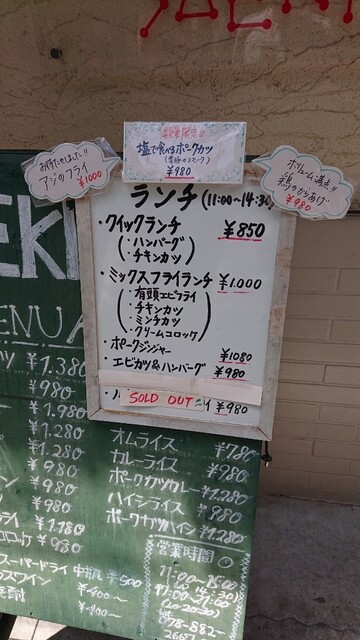 数量限定!!
塩で食べるポークカツ
¥980
お待たせしました!!
アジのフライ
¥1000
ボリューム満点!!
鶏のからあげ
¥980
ランチ(11:00~14:30)
・クイックランチ ¥850
・ハンバーグ
・チキンカツ
・ミックスフライランチ ¥1.000
・有頭エビフライ
・チキンカツ
・ミンチカツ
・クリームコロッケ
・ポークジンジャー ¥1080
・エビカツ&ハンバーグ ¥980
SOLD OUT
¥980
EK
ENU
¥1.380
¥980
¥1.980
¥1.280
¥1.280
¥980
¥980
¥980
¥1.180
¥980
オムライス ¥780
カレーライス ¥980
ポークカツカレー ¥1.280
ハイシライス ¥980
ポークカツハイシ ¥1.280
スーパードライ 中瓶 ¥500
ワイン ¥400~
¥400~
営業時間
11:00~15:00
(14:30)
17:00~21:00
(20:30)
078-882-